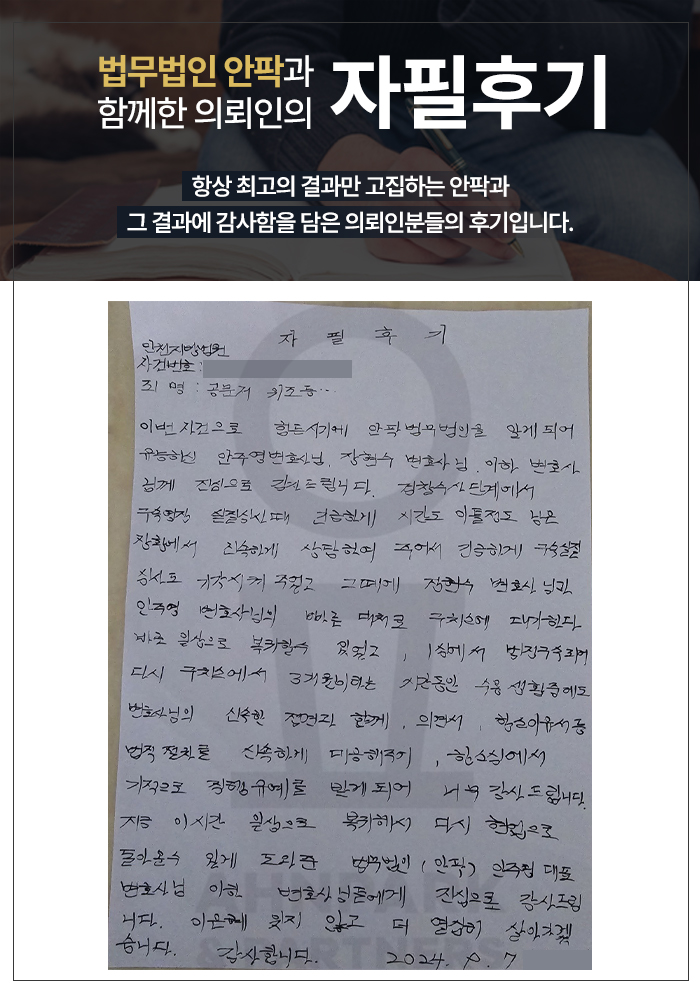 법무법인 안팍과
함께한 의뢰인의
자필후기
항상 최고의 결과만 고집하는 안팍과
그 결과에 감사함을 담은 의뢰인분들의 후기입니다.
자 필 후 기
인천지방법원
사건번호 :
죄 명 : 공문서 위조등...
이번 사건으로 힘든시기에 안팍법무법인을 알게되어
유능하신 안주영변호사님, 장현수 변호사님, 이하 변호사
님께 진심으로 감사드립니다. 경찰수사단계에서
구속영장 실질심사때 긴급하게 시간도 이틀정도 남은
상황에서 신속하게 상담하여 주어서 긴급하게 구속실질
심사도 기각시켜 주었고 그때에 장현수 변호사님과
안주영 변호사님의 빠른 대처로 구치소에 대기하다
바로 일상으로 복귀할수 있었고, 1심에서 법정구속되어
다시 구치소에서 3개월이라는 기간동안 수용생활중에도
변호사님의 신속한 접견과 함께, 의견서, 항소이유서등
법적절차를 신속하게 대응해주기, 항소심에서
기적으로 집행유예를 받게되어 너무 감사드립니다.
지금 이시간 일상으로 복귀해서 다시 현업으로
돌아올수 있게 도와준 법무법인(안팍) 안주영 대표
변호사님 이하 변호사님들에게 진심으로 감사드립
니다. 이은혜 잊지 않고 더 열심히 살아가겠
습니다. 감사합니다. 2024. 7
AHNPARK
& PARTNERS